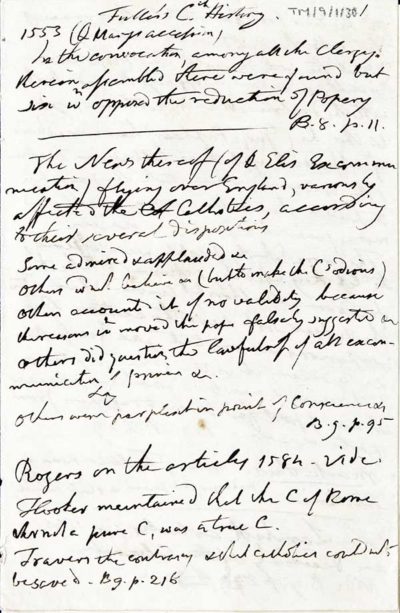 Fuller's Ch History.
TM/9/1/30/
1553 (Q Marys accession)
In the convocation among all the Clergy
therein assembled there were found but
six wh opposed the reduction of Popery
B. 8. p. 11.
The News thereof (of Q Elis Excommu
nication) flying over England, variously
affected the Catholics, according
to their several dispositions
Some admired & applauded &c
Others wd not believe it (but to make the Cs odious)
Others accounted it of no validity because
the reasons wh moved the pope falsely suggested &c
Others did question the lawfulness of all excom-
munication of princes &c.
Others were perplexed in point of Conscience &c
B. 9. p. 95
Rogers on the articles 1584. Vide
Hooker maintained that the C of Rome
tho not a pure C, was a true C.
Travers the contrary & that Catholics could not
be saved. B 9. p. 216